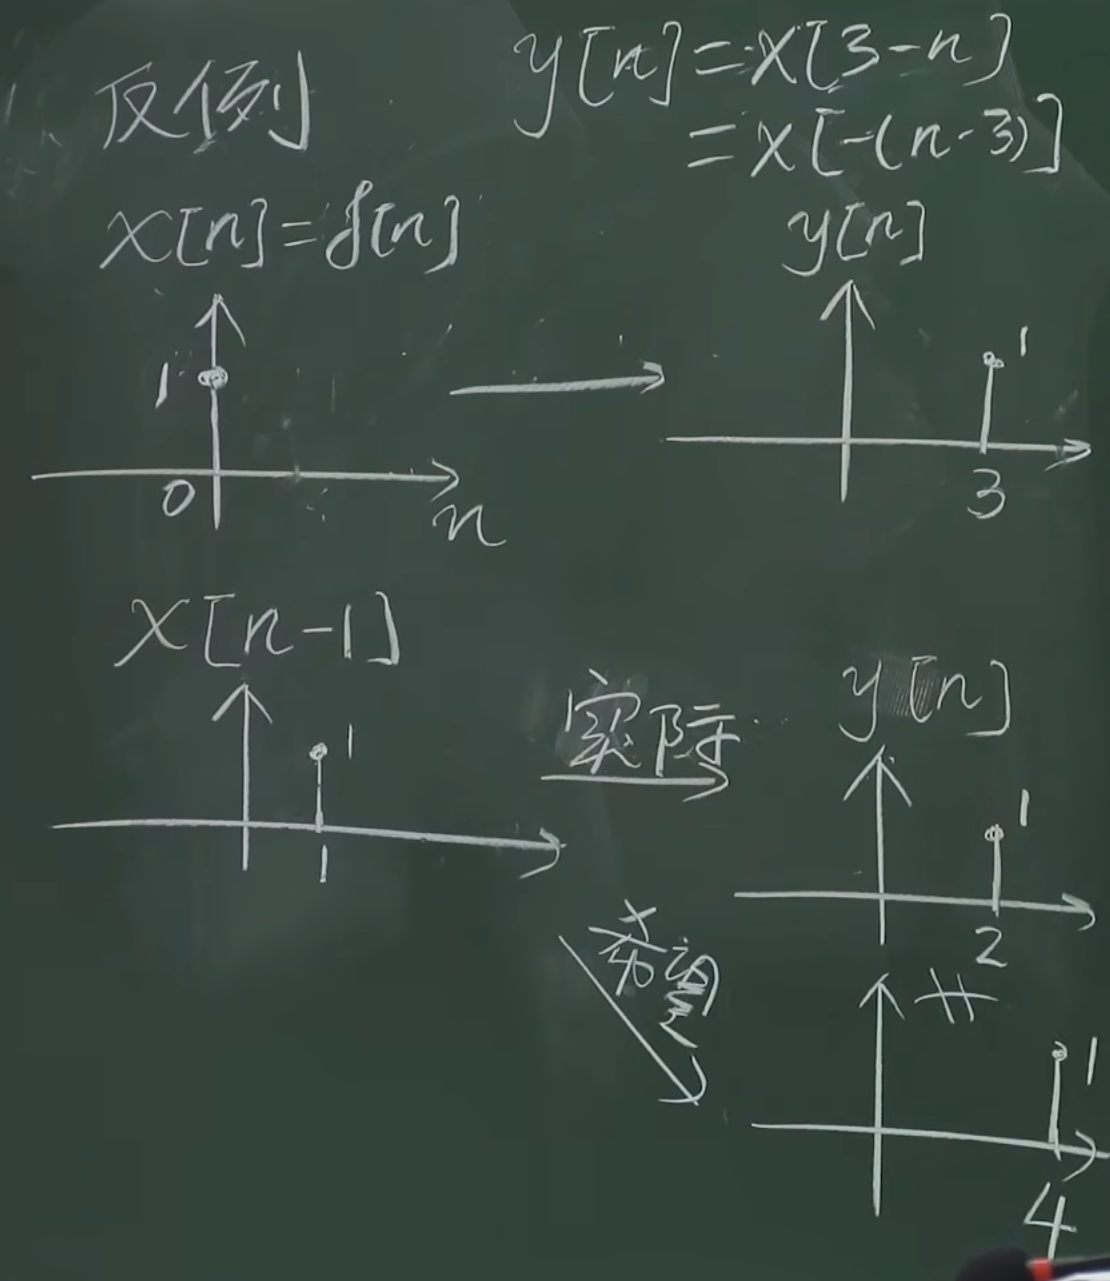 反例
y[n]=x[3-n]
=x[-(n-3)]
x[n]=δ[n]
y[n]
1
0
n
1
3
x[n-1]
1
1
实际
y[n]
1
2
希望
≠
1
4